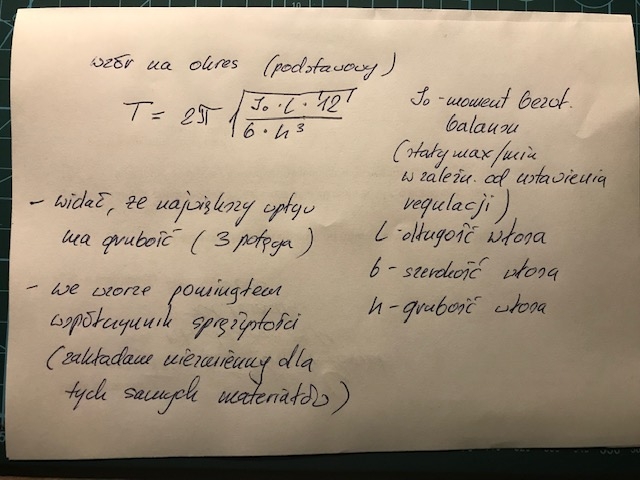 wzór na okres (podstawowy)
T = 2π √(J₀ · L · 12 / b · h³)
J₀ - moment bezwł.
balansu
(stały max/min
w zależn. od ustawienia
regulacji)
L - długość włosa
b - szerokość włosa
h - grubość włosa
- widać, że największy wpływ
ma grubość (3 potęga)
- we wzorze pominąłem
współczynnik sprężystości
(zakładane niezmienny dla
tych samych materiałów)